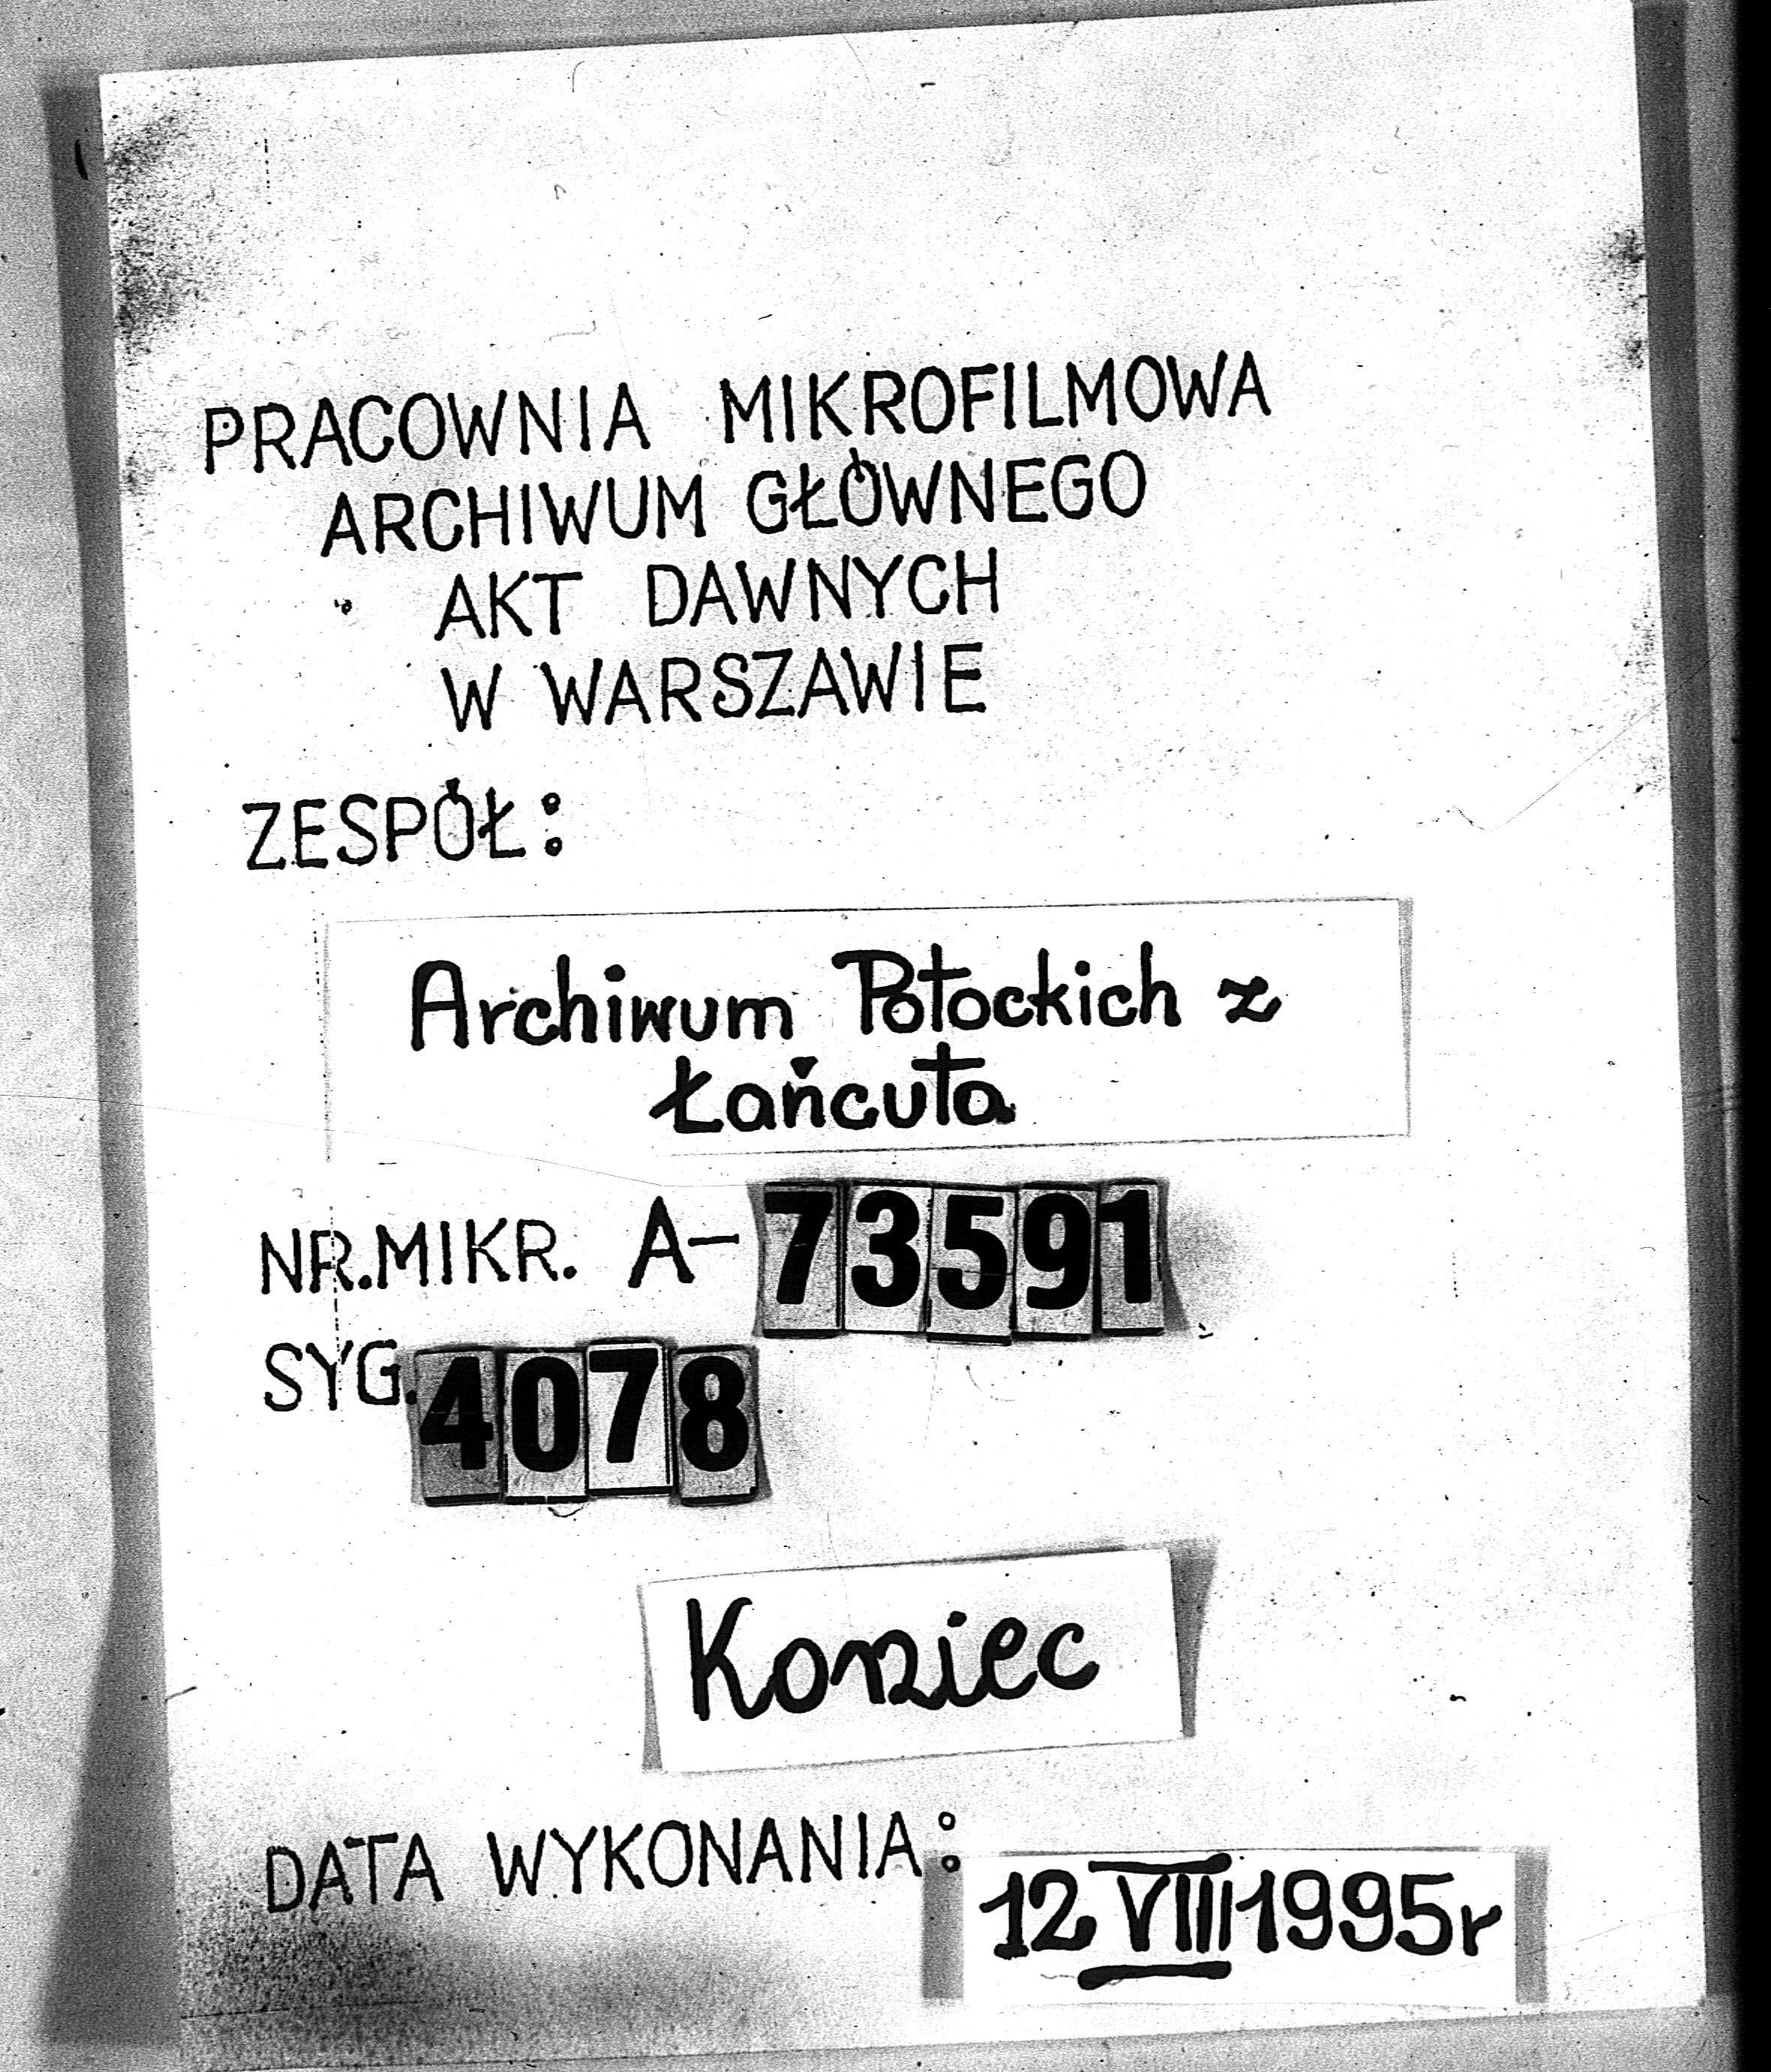 PRACOWNIA MIKROFILMOWA
ARCHIWUM GŁÓWNEGO
AKT DAWNYCH
W WARSZAWIE
ZESPÓŁ:
Archiwum Potockich z
Łańcuta
NR.MIKR. A-73591
SYG.4078
Koniec
DATA WYKONANIA: 12 VIII 1995r